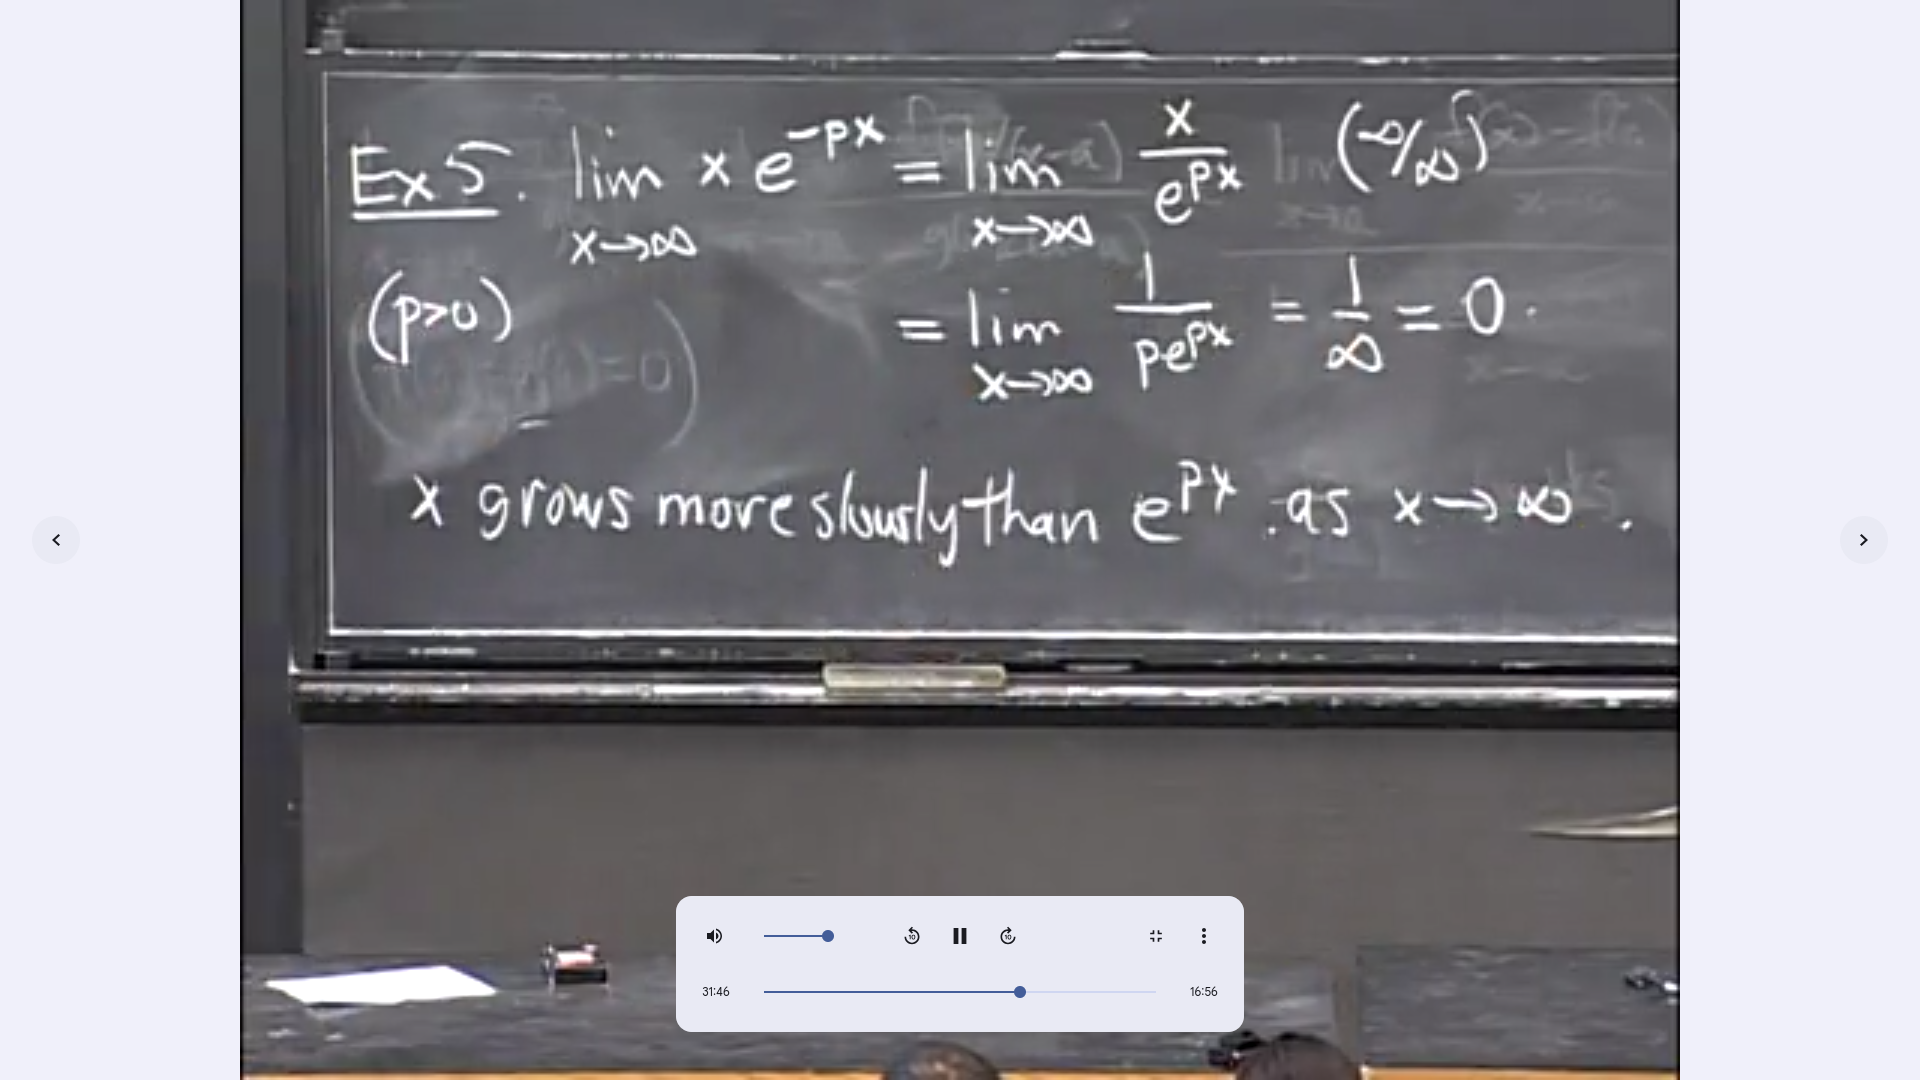 Ex 5. lim x→∞ x e^{-px} = lim x→∞ x/e^{px} (∞/∞)
(p>0) = lim x→∞ 1/pe^{px} = 1/∞ = 0.
x grows more slowly than e^{px} as x→∞.
10 10
31:46 16:56